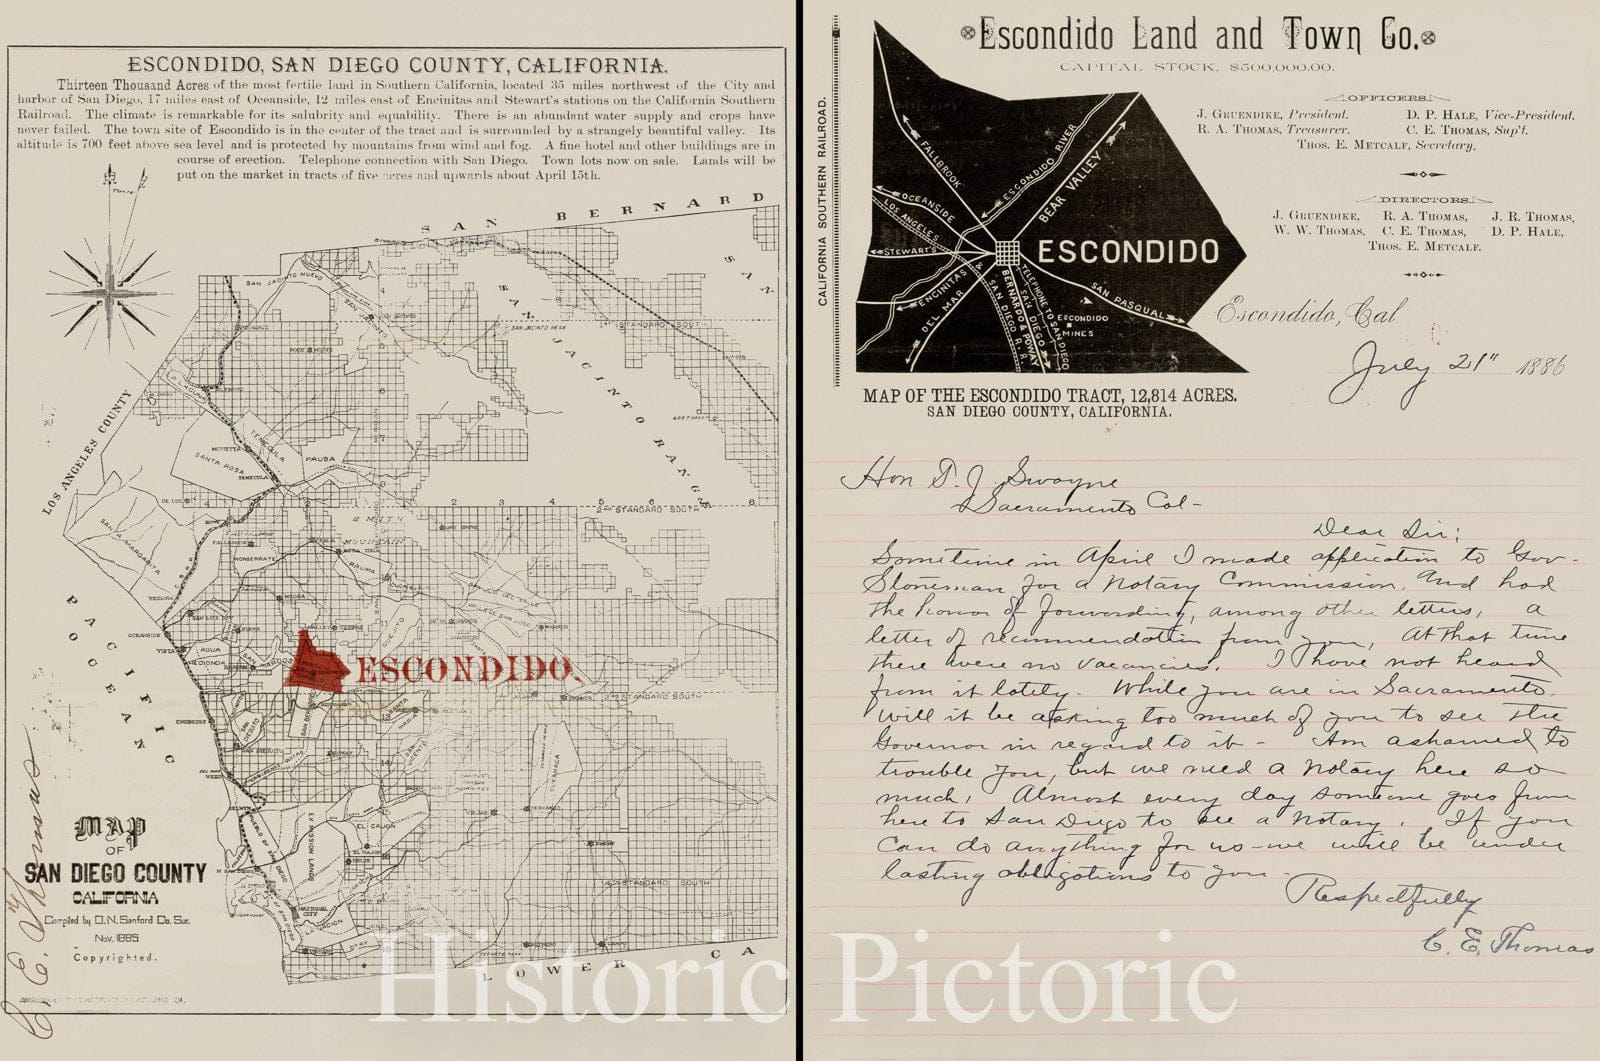 ESCONDIDO, SAN DIEGO COUNTY, CALIFORNIA.
Thirteen Thousand Acres of the most fertile land in Southern California, located 35 miles northwest of the City and
harbor of San Diego, 17 miles east of Oceanside, 12 miles east of Encinitas and Stewart's stations on the California Southern
Railroad. The climate is remarkable for its salubrity and equability. There is an abundant water supply and crops have
never failed. The town site of Escondido is in the center of the tract and is surrounded by a strangely beautiful valley. Its
altitude is 700 feet above sea level and is protected by mountains from wind and fog. A fine hotel and other buildings are in
course of erection. Telephone connection with San Diego. Town lots now on sale. Lands will be
put on the market in tracts of five acres and upwards about April 15th.
SAN BERNARD
SAN
SAN JACINTO NUEVO
SAN JACINTO RANGE
SAN JACINTO PEAK
1ST STANDARD SOUTH
LOS ANGELES COUNTY
LA LAGUNA
TEMECULA
SANTA ROSA
PAUBA
MURIETTA
TEMECULA
2 3 4 5 6 7 8
2ND STANDARD SOUTH
SANTA MARGARITA
SMITH
MOUNTAIN
MONSERRATE
PAUMA
PACIFIC
OCEAN
OCEANSIDE
VISTA
AGUA
HEDIONDA
GUEJITO
ESCONDIDO.
3RD STANDARD SOUTH
SAN DIEGUITO
SANTA MARIA
SAN VICENTE
CUYAMACA
EL CAJON
EX MISSION LANDS
PUEBLO OF SAN DIEGO
NATIONAL CITY
LA NACION
OTAY
4TH STANDARD SOUTH
LOWER CA
MAP
OF
SAN DIEGO COUNTY
CALIFORNIA
Compiled by O. N. Sanford Co. Sur.
Nov. 1885
Copyrighted.
C. E. Thomas
Escondido Land and Town Co.
CAPITAL STOCK, $500,000.00.
OFFICERS.
J. GRUENDIKE, President. D. P. HALE, Vice-President.
R. A. THOMAS, Treasurer. C. E. THOMAS, Sup't.
THOS. E. METCALF, Secretary.
DIRECTORS.
J. GRUENDIKE, R. A. THOMAS, J. R. THOMAS,
W. W. THOMAS, C. E. THOMAS, D. P. HALE,
THOS. E. METCALF.
CALIFORNIA SOUTHERN RAILROAD.
FALLBROOK
ESCONDIDO RIVER
BEAR VALLEY
OCEANSIDE
LOS ANGELES
STEWART'S
ESCONDIDO
ENCINITAS
DEL MAR
& SAN DIEGO R. R.
BERNARDO & POWAY
TELEPHONE TO SAN DIEGO
SAN DIEGO
SAN PASQUAL
ESCONDIDO
MINES
MAP OF THE ESCONDIDO TRACT, 12,814 ACRES.
SAN DIEGO COUNTY, CALIFORNIA.
Escondido, Cal
July 21" 1886
Hon T. J Swayne
Sacramento Cal-
Dear Sir;
Sometime in April I made application to Gov-
Stoneman for a Notary Commission. And had
the honor of forwarding, among other letters, a
letter of recommendation from you, At that time
there were no vacancies. I have not heard
from it lately. While you are in Sacramento.
Will it be asking too much of you to see the
Governor in regard to it- Am ashamed to
trouble you, but we need a Notary here so
much, Almost every day someone goes from
here to San Diego to see a Notary. If you
can do anything for us-we will be under
lasting obligations to you-
Respectfully
C. E, Thomas
Historic Pictoric